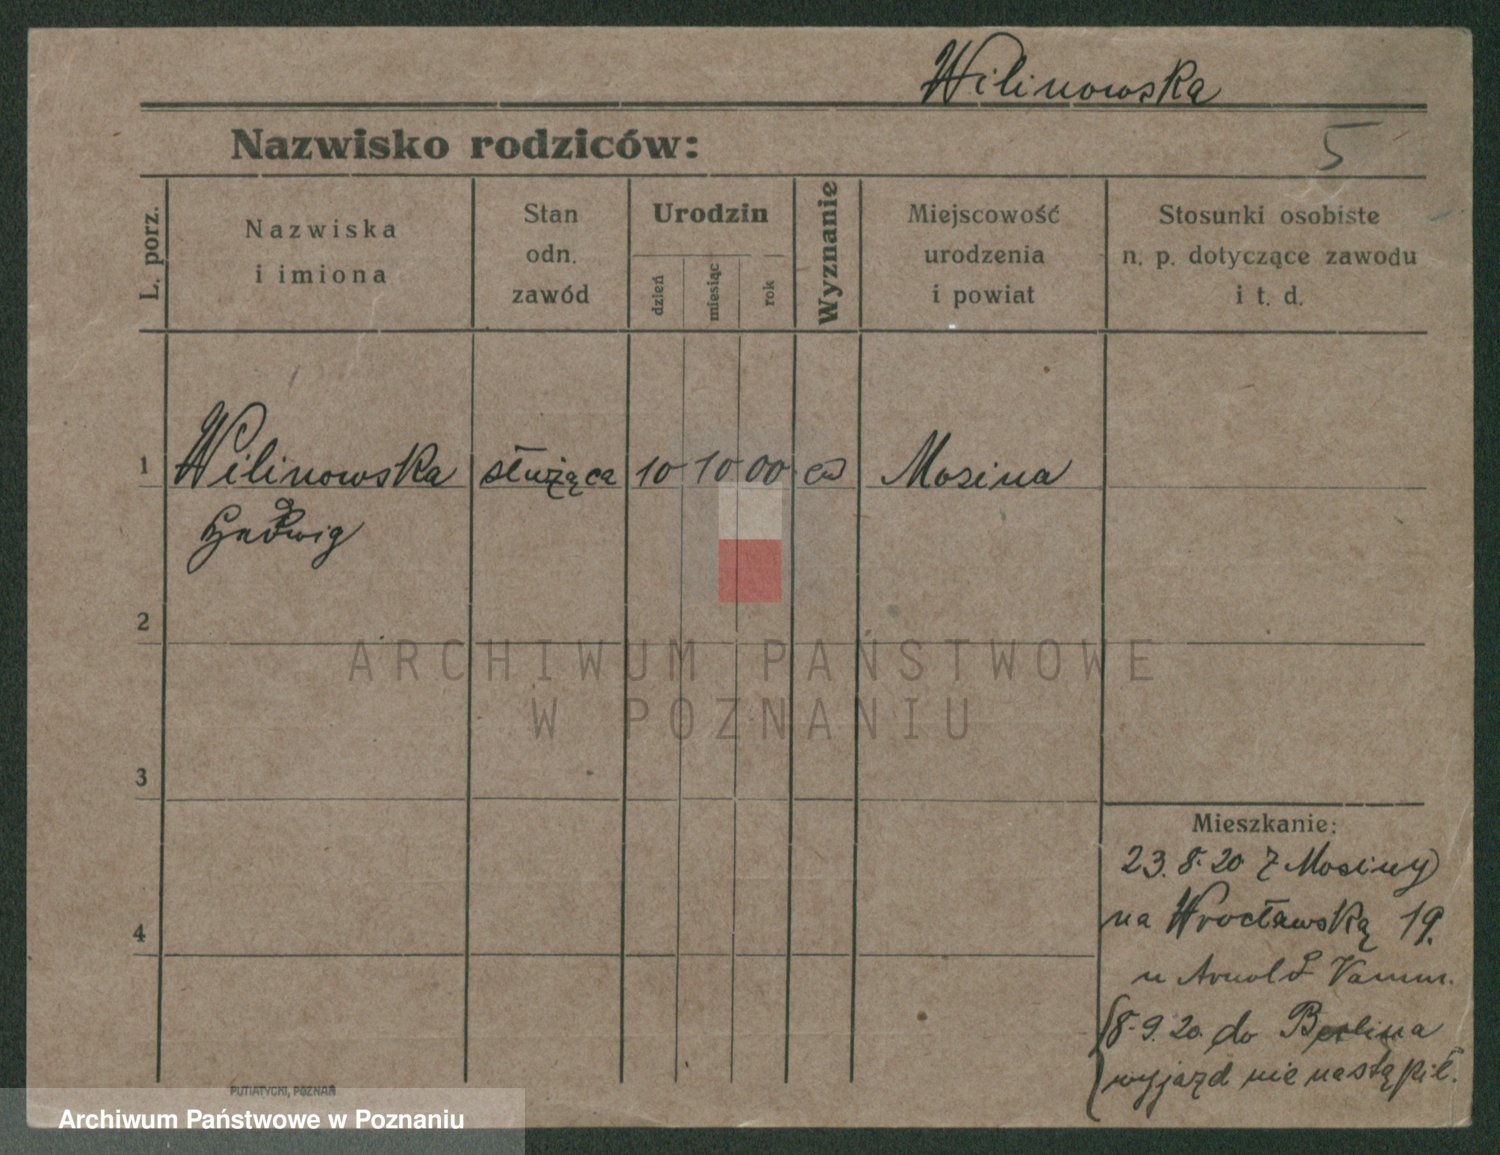 Wilinowska
Nazwisko rodziców:
5
L. porz.
Nazwiska
i imiona
Stan
odn.
zawód
Urodzin
dzień
miesiąc
rok
Wyznanie
Miejscowość
urodzenia
i powiat
Stosunki osobiste
n. p. dotyczące zawodu
i t. d.
1 Wilinowska służąca 10 10 00 Mosina
Hedwig
2
3
4
ARCHIWUM PAŃSTWOWE
W POZNANIU
Mieszkanie:
23.8.20 z Mosiny
na Wrocławską 19.
u Arnold
8.9.20. do Berlina
wyjazd nie nastąpił.
PUTIATYCKI, POZNAŃ
Archiwum Państwowe w Poznaniu